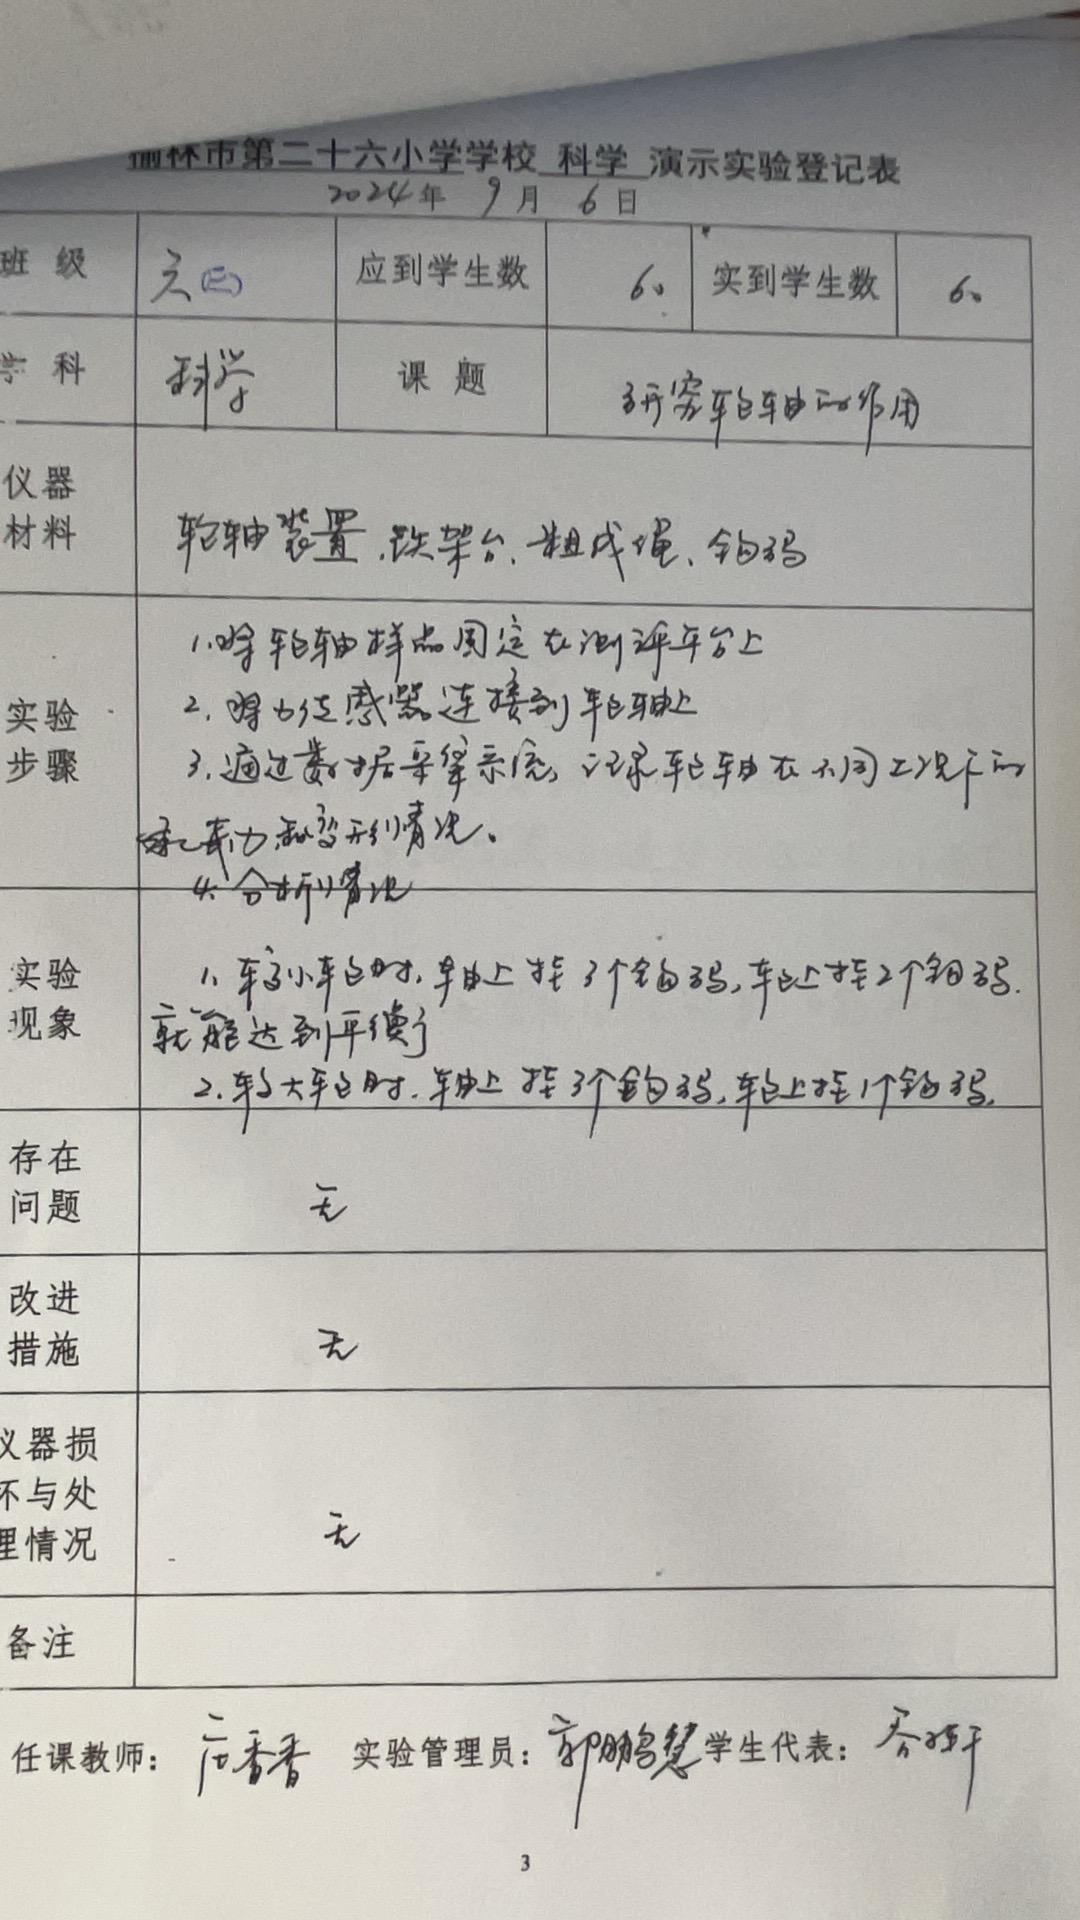 榆林市第二十六小学学校 科学 演示实验登记表
2024年 9月 6日
班级 六(三) 应到学生数 60 实到学生数 60
学科 科学 课题 研究轮轴的作用
仪器材料 轮轴装置、铁架台、粗成绳、钩码
实验步骤 1.将轮轴样品固定在测评平台上
2.将力传感器连接到轮轴上
3.通过数据采集系统,记录轮轴在不同工况下的
承载力和变形情况。
4.分析情况
实验现象 1.轮小轮时,轴上挂3个钩码,轮上挂2个钩码.
就能达到平衡了
2.大轮时.轴上挂3个钩码,轮上挂1个钩码.
存在问题 无
改进措施 无
仪器损坏与处理情况 无
备注
任课教师: 香香 实验管理员:郭鹏慧 学生代表:
3